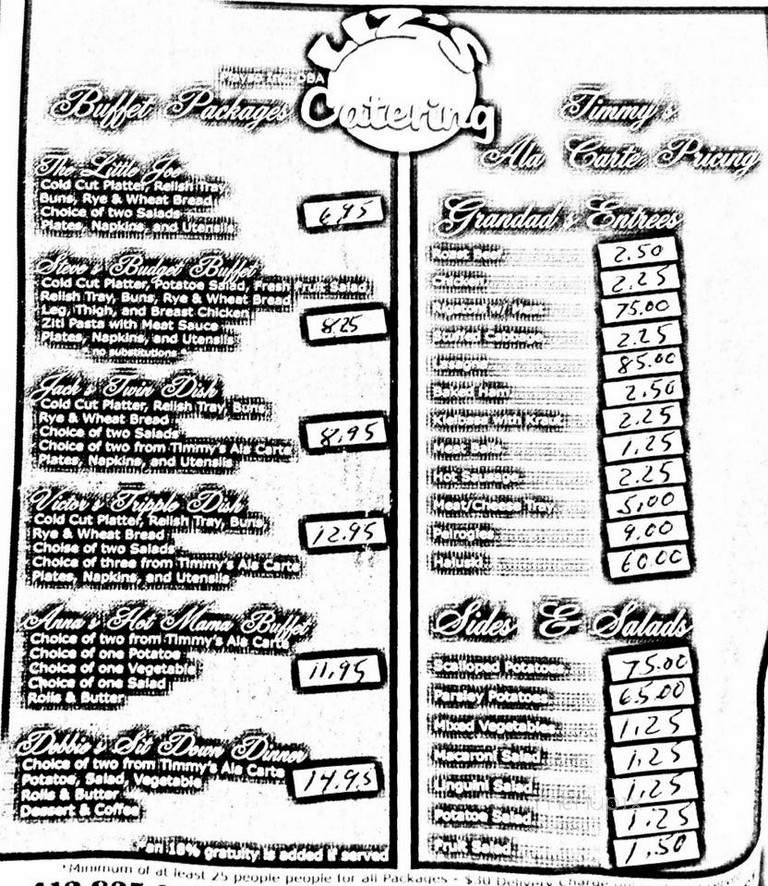 Liz's
Catering
Buffet Packages
The Little Joe
Cold Cut Platter, Relish Tray
Buns, Rye & Wheat Bread
Choice of two Salads
Plates, Napkins, and Utensils
6.95
Steve's Budget Buffet
Cold Cut Platter, Potatoe Salad, Fresh Fruit Salad
Relish Tray, Buns, Rye & Wheat Bread
Leg, Thigh, and Breast Chicken
Ziti Pasta with Meat Sauce
Plates, Napkins, and Utensils
no substitutions
8.25
Jack's Twin Dish
Cold Cut Platter, Relish Tray, Buns
Rye & Wheat Bread
Choice of two Salads
Choice of two from Timmy's Ala Carte
Plates, Napkins, and Utensils
8.95
Victor's Tripple Dish
Cold Cut Platter, Relish Tray, Buns
Rye & Wheat Bread
Choise of two Salads
Choice of three from Timmy's Ala Carte
Plates, Napkins, and Utensils
12.95
Anna's Hot Mama Buffet
Choice of two from Timmy's Ala Carte
Choice of one Potatoe
Choice of one Vegetable
Choice of one Salad
Rolls & Butter
11.95
Debbie's Sit Down Dinner
Choice of two from Timmy's Ala Carte
Potatoe, Salad, Vegetable
Rolls & Butter
Dessert & Coffee
14.95
an 18% gratuity is added if served
Timmy's
Ala Carte Pricing
Grandad's Entrees
Roast Beef 2.50
Chicken 2.25
75.00
Stuffed Cabbage 2.25
85.00
Baked Ham 2.50
Kielbasa with Kraut 2.25
1.25
Hot Sausage 2.25
Meat/Cheese Tray 5.00
Peirogies 9.00
Haluski 60.00
Sides & Salads
Scalloped Potatoes 75.00
Parsley Potatoes 65.00
Mixed Vegetables 1.25
Macaroni Salad 1.25
Linguini Salad 1.25
Potatoe Salad 1.25
Fruit Salad 1.50
*Minimum of at least 25 people people for all Packages - $30 Delivery Charge